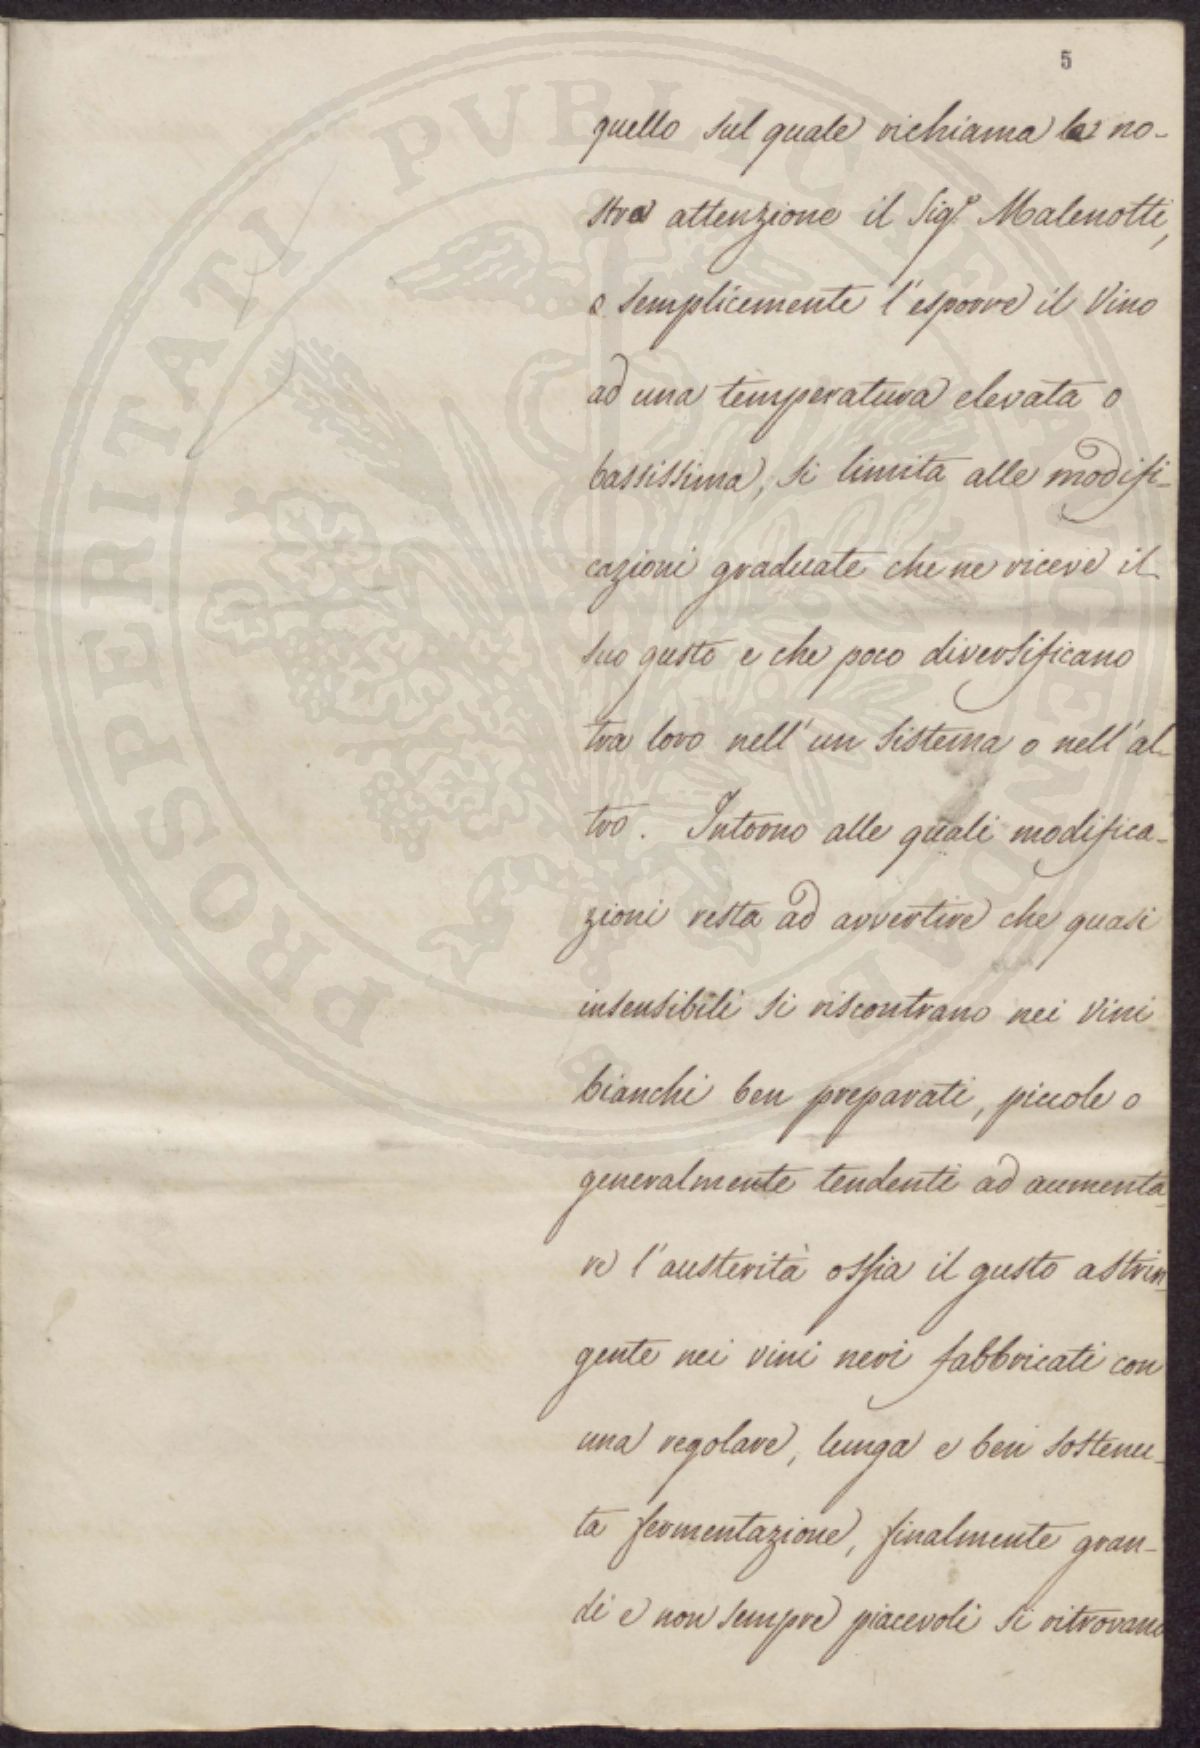 5
quello sul quale richiama la no-
stra attenzione il Sig.r Malenotti,
o semplicemente l'esporre il Vino
ad una temperatura elevata o
bassissima, si limita alle modifi-
cazioni graduate che ne riceve il
suo gusto e che poco diversificano
tra loro nell'un sistema o nell'al-
tro. Intorno alle quali modifica-
zioni resta ad avvertire che quasi
insensibili si riscontrano nei Vini
bianchi ben preparati, piccole o
generalmente tendenti ad aumenta-
re l'austerità ossia il gusto astrin-
gente nei vini neri fabbricati con
una regolare, lunga e ben sostenu-
ta fermentazione, finalmente gran-
di e non sempre piacevoli si ritrovano
PROSPERITATI PUBLICAE AUGENDAE